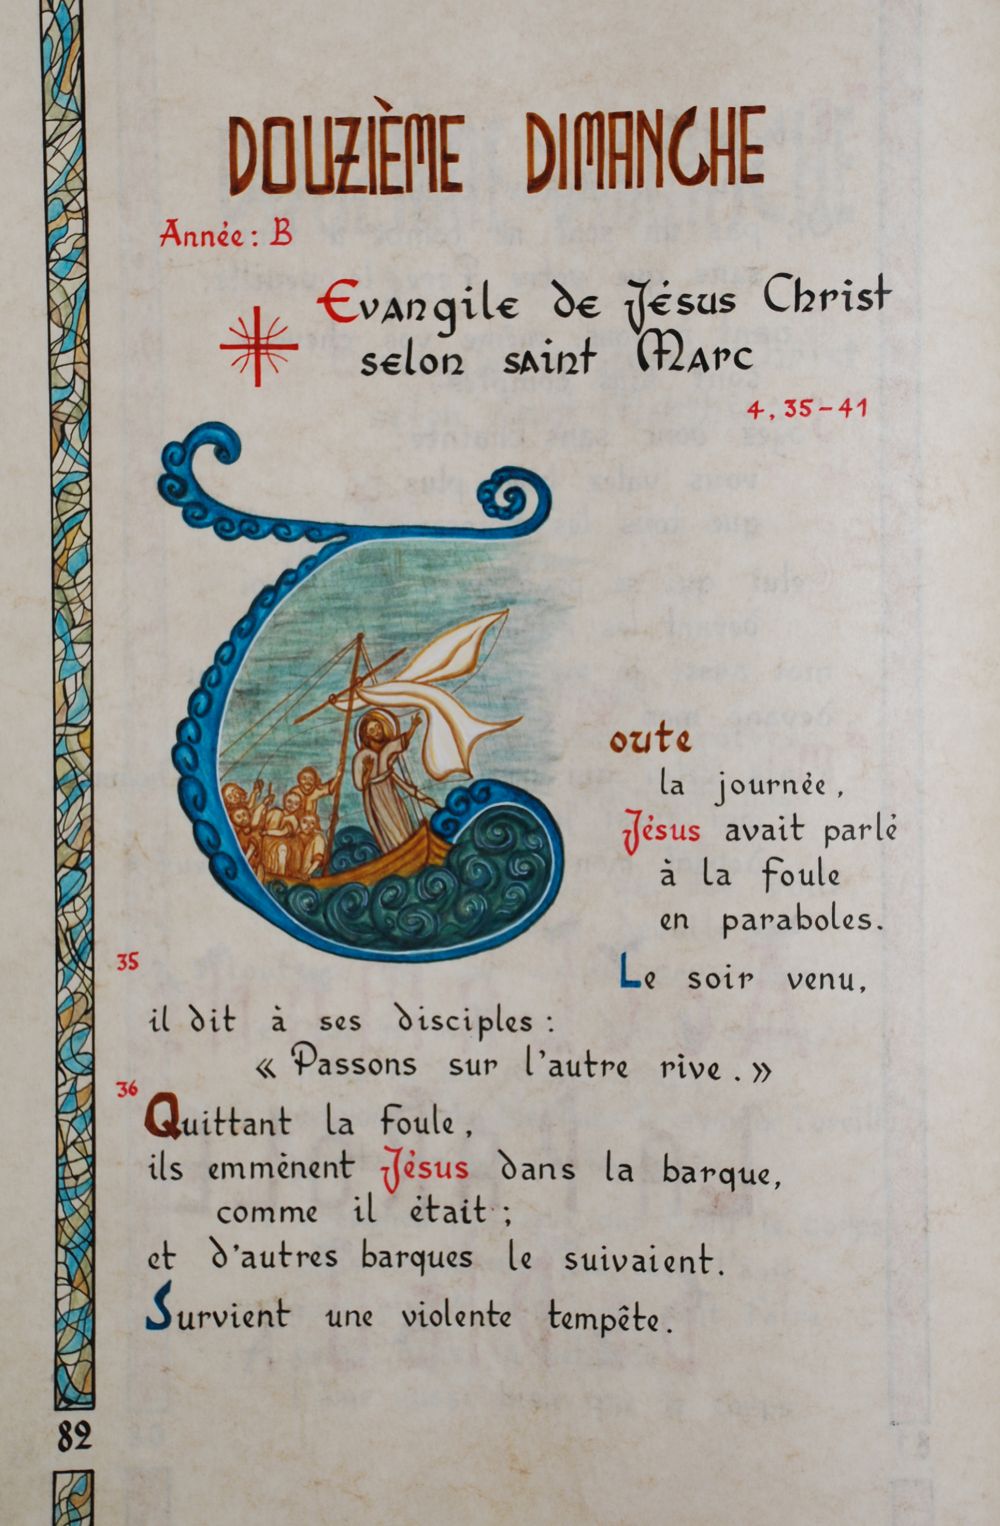 DOUZIÈME DIMANCHE
Année : B
Evangile de Jésus Christ
selon saint Marc
4, 35-41
Toute
la journée,
Jésus avait parlé
à la foule
en paraboles.
35
Le soir venu,
il dit à ses disciples :
« Passons sur l'autre rive. »
36
Quittant la foule,
ils emmènent Jésus dans la barque,
comme il était ;
et d'autres barques le suivaient.
Survient une violente tempête.
82